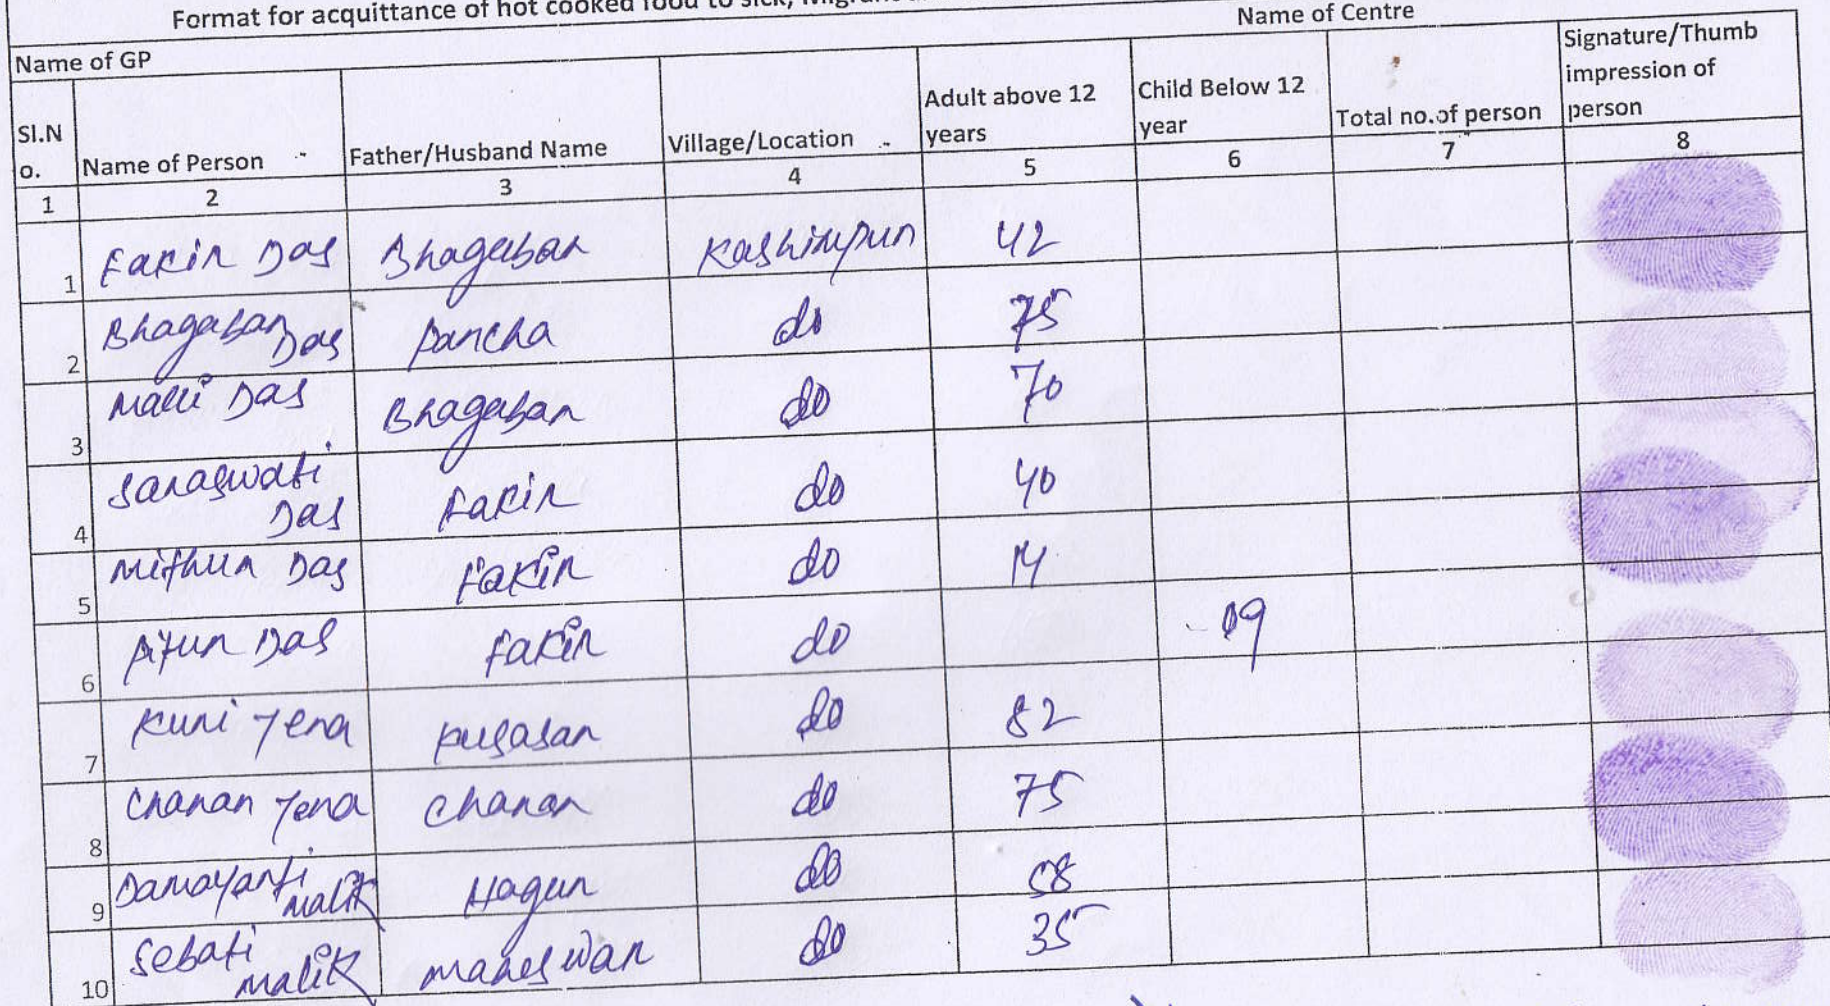 Format for acquittance of hot cooked food to sick,
Name of GP Name of Centre
Sl.No. Name of Person Father/Husband Name Village/Location Adult above 12 years Child Below 12 year Total no.of person Signature/Thumb impression of person
1 2 3 4 5 6 7 8
1 Fakir Das Bhagaban Kashimpur 42
2 Bhagaban Das Pancha do 75
3 Malli Das Bhagaban do 70
4 Saraswati Das Fakir do 40
5 Mithun Das Fakir do 14
6 Das Fakir do 09
7 Kuni Jena do 82
8 Charan Jena Charan do 75
9 Damayanti Malik do 58
10 Sebati Malik Maheswar do 35